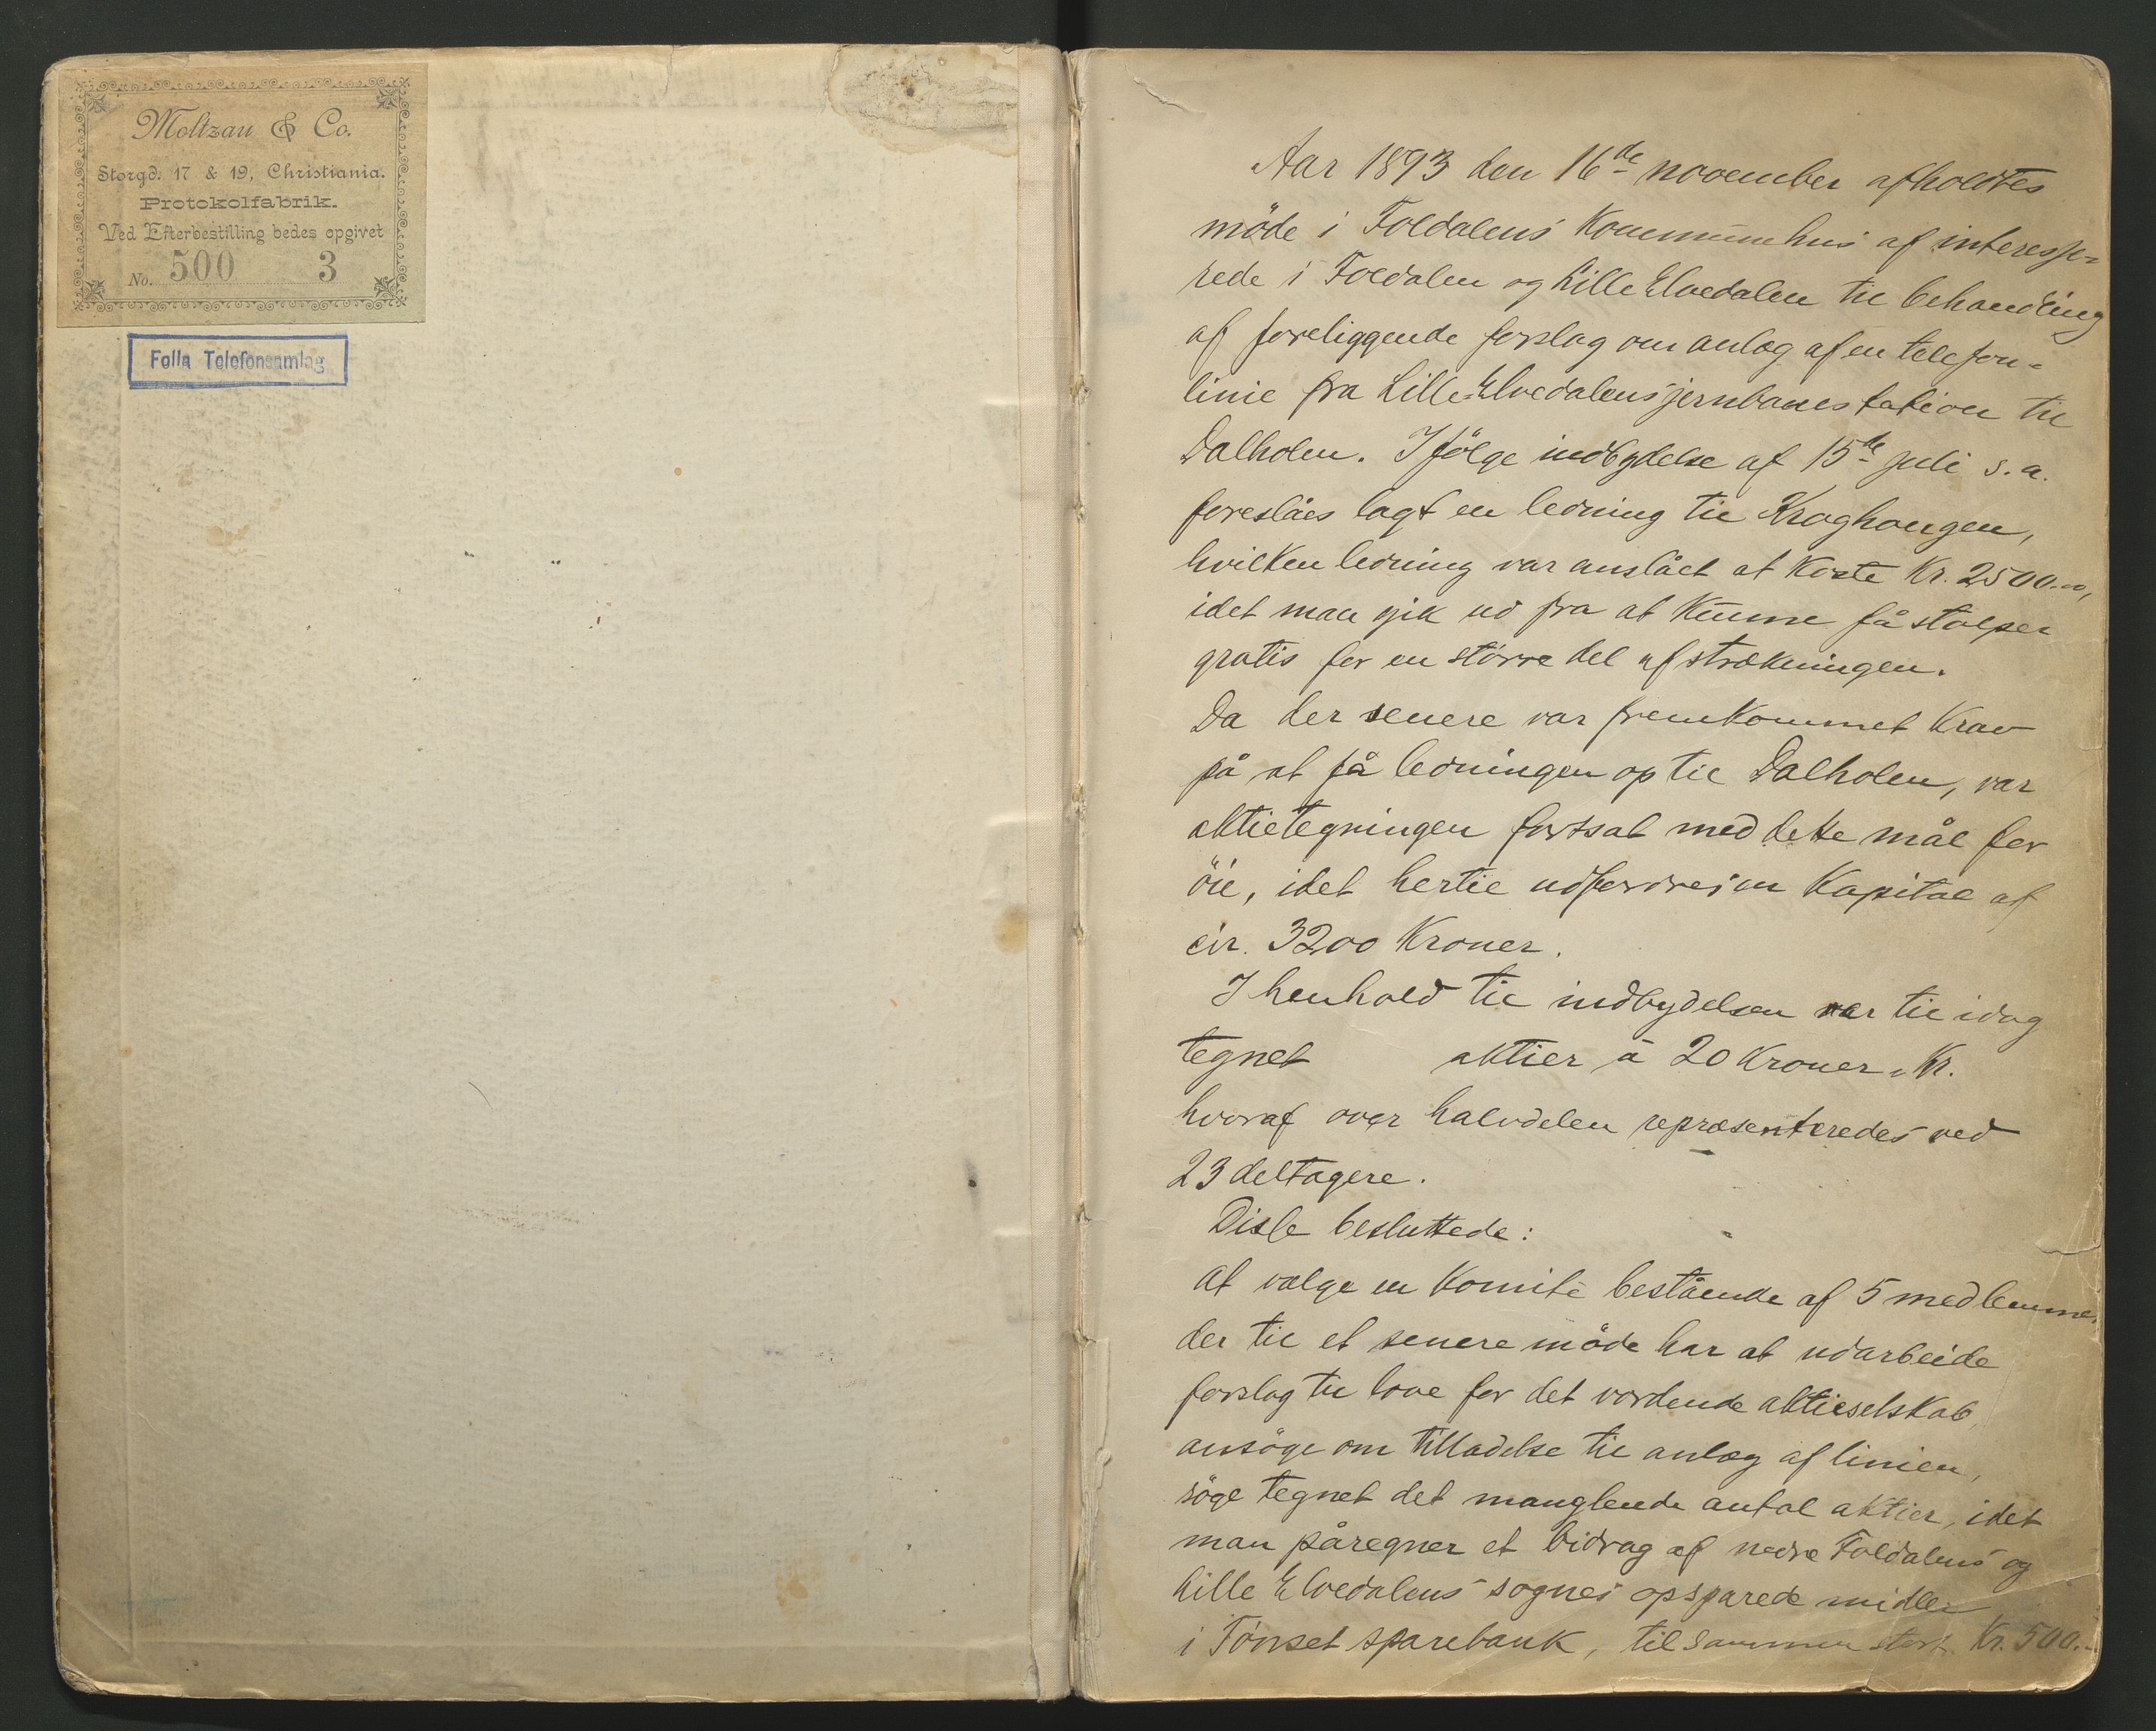 Moltzau & Co.
Storgd. 17 & 19, Christiania.
Protokolfabrik.
Ved Efterbestilling bedes opgivet
No. 500 3
Folla Telefonsamlag
Aar 1893 den 16de november afholdtes
möde i Foldalens Kommunehus af interesse-
rede i Foldalen og Lille Elvedalen til behandling
af foreliggende forslag om anlæg af en telefon-
linie fra Lille-Elvedalens jernbanestation til
Dalholen. Ifölge indbydelse af 15de juli s.a.
foreslåes lagt en ledning til Kroghougen,
hvilken ledning var anslået at koste Kr. 2500.00,
idet man gik ud fra at kunne få stolper
gratis for en större del af strækningen.
Da der senere var fremkommet krav
på at få ledningen op til Dalholen, var
aktietegningen fortsat med dette mål for
öie, idet hertil udfordres en Kapital af
cir. 3200 Kroner.
I henhold til indbydelsen var til idag
tegnet aktier à 20 Kroner, Kr.
hvoraf over halvdelen repræsenteredes ved
23 deltagere.
Disse besluttede:
at vælge en Komite bestående af 5 medlemmer
der til et senere möde har at udarbeide
forslag til love for det vordende aktieselskab,
ansöge om tilladelse til anlæg af linien,
söge tegnet det manglende antal aktier, idet
man påregner et bidrag af nedre Foldalens og
Lille Elvedalens sognes opsparede midler
i Tönset sparebank, tilsammen stort Kr. 500.-